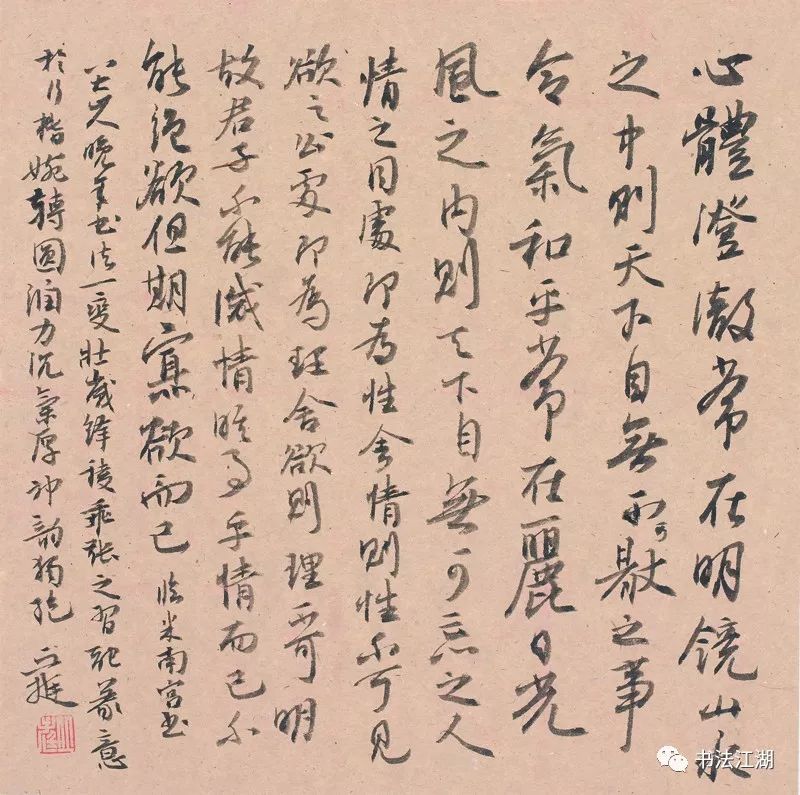 心體澄澈常在明鏡止水
之中則天下自無可厭之事
令氣和平常在麗日光
風之內則天下自無可惡之人
情之同處即為性舍情則性不可見
欲之公處即為理舍欲則理不可明
故君子不能滅情惟事乎情而已不
能絕欲但期寡欲而已 臨米南宮書
八大人晚年書法一變壯歲鋒稜乖張之習
於行楷婉轉圓潤力沉氣厚冲韵獨絕
书法江湖